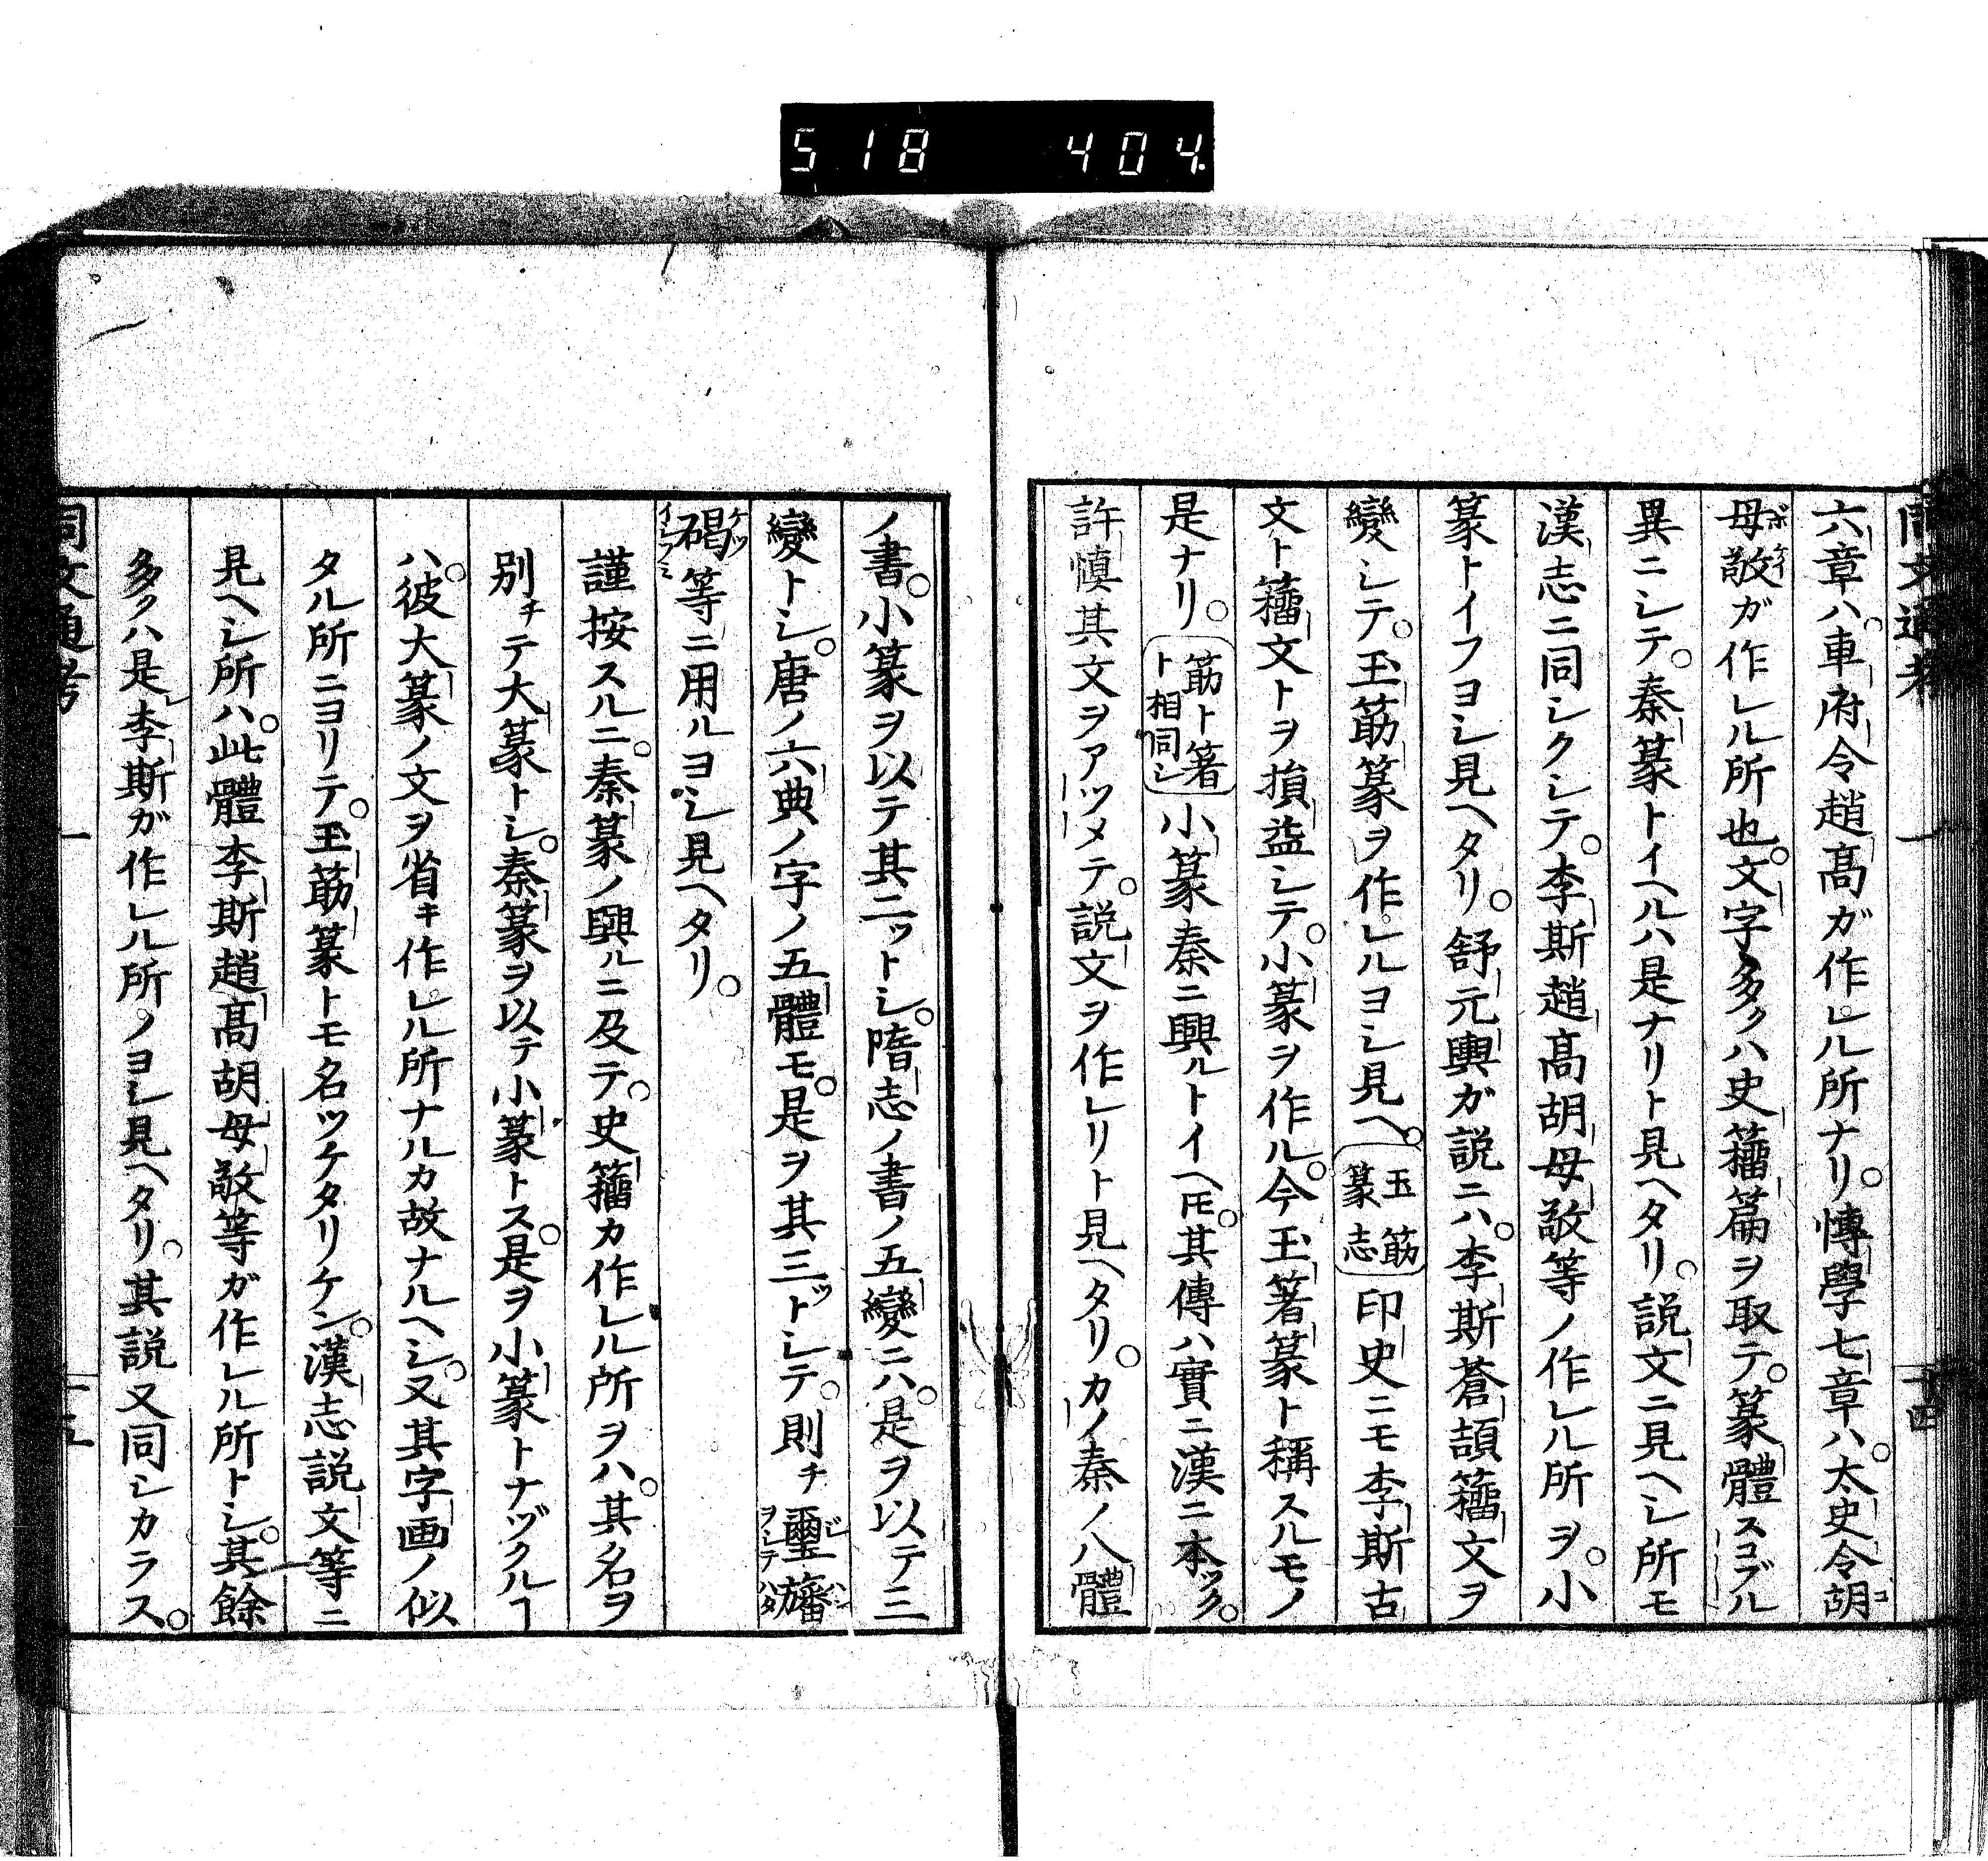 518 404
同文通考 一 十四
六章ハ。車府令趙髙ガ作レル所ナリ。愽學七章ハ。太史令胡
母敬ガ作レル所也。文字多クハ史籀篇ヲ取テ。篆體スコブル
異ニシテ。秦篆トイヘルハ是ナリト見ヘタリ。説文ニ見ヘシ所モ
漢志ニ同シクシテ。李斯趙髙胡母敬等ノ作レル所ヲ。小
篆トイフヨシ見ヘタリ。舒元輿ガ説ニハ。李斯蒼頡籀文ヲ
變シテ。玉筋篆ヲ作レルヨシ見ヘ。玉筋篆志印史ニモ李斯古
文ト籀文トヲ損益シテ。小篆ヲ作ル。今玉箸篆ト稱スルモノ
是ナリ。筋ト箸ト相同シ小篆秦ニ興ルトイヘ𪜈。其傳ハ實ニ漢ニ本ツク。
許慎其文ヲアツメテ。説文ヲ作レリト見ヘタリ。カノ秦ノ八體
ノ書。小篆ヲ以テ其二ツトシ。隋志ノ書ノ五變ニハ。是ヲ以テ三
變トシ。唐ノ六典ノ字ノ五體モ。是ヲ其三ツトシテ。則チ璽旛
碣等ニ用ルヨシ見ヘタリ。
謹按スルニ。秦篆ノ興ルニ及テ。史籀カ作レル所ヲハ。其名ヲ
別チテ大篆トシ。秦篆ヲ以テ小篆トス。是ヲ小篆トナヅクルヿ
ハ。彼大篆ノ文ヲ省キ作レル所ナルカ故ナルヘシ。又其字画ノ似
タル所ニヨリテ。玉筋篆トモ名ツケタリケン。漢志説文等ニ
見ヘシ所ハ。此體李斯趙髙胡母敬等ガ作レル所トシ。其餘
多クハ是李斯ガ作レル所ノヨシ見ヘタリ。其説又同シカラス。
同文通考 一 十五